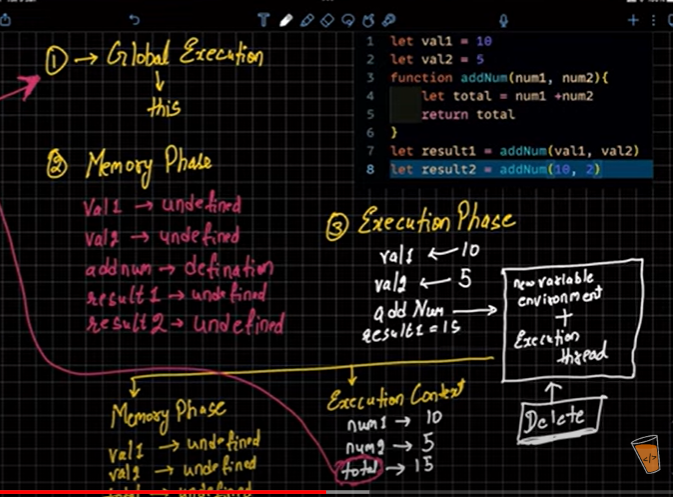 ① → Global Execution
↓
this
② Memory Phase
val1 → undefined
val2 → undefined
addnum → defination
result1 → undefined
result2 → undefined
1 let val1 = 10
2 let val2 = 5
3 function addNum(num1, num2){
4 let total = num1 +num2
5 return total
6 }
7 let result1 = addNum(val1, val2)
8 let result2 = addNum(10, 2)
③ Execution Phase
val1 ← 10
val2 ← 5
add Num →
result1 = 15
new variable
environment
+
Execution
thread
Delete
Memory Phase
val1 → undefined
val2 → undefined
total → undefined
Execution Context
num1 → 10
num2 → 5
total → 15